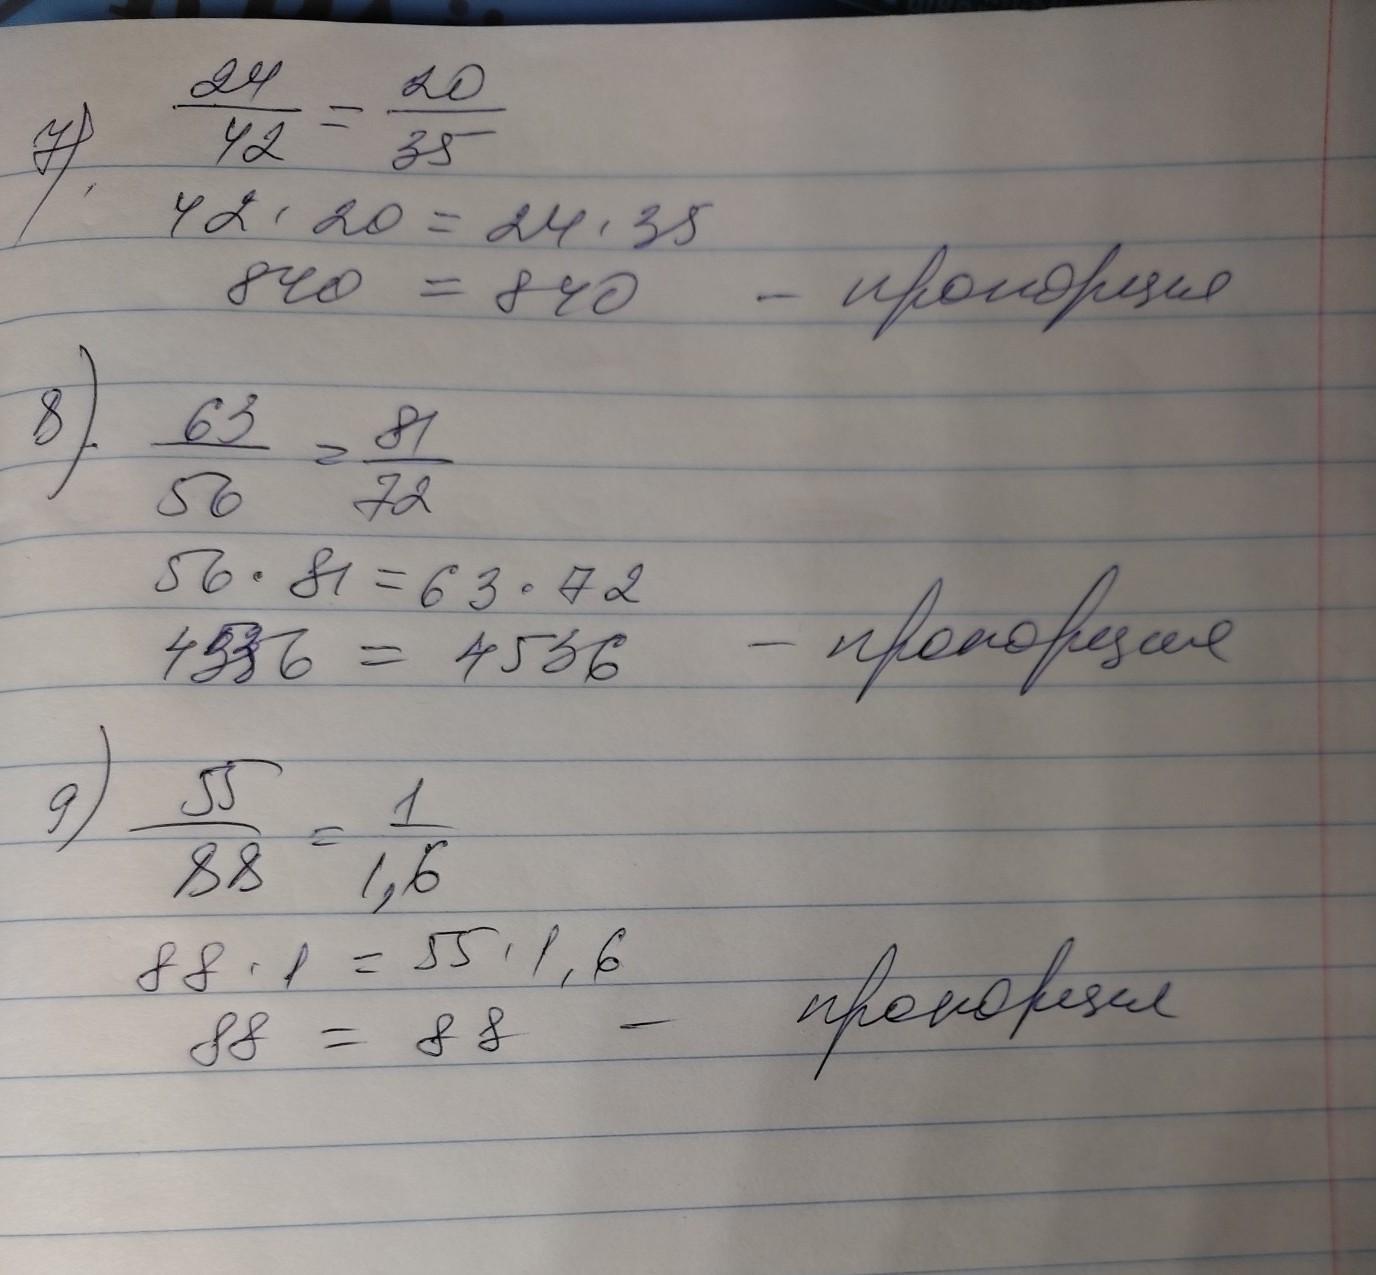 7) 24/42 = 20/35
42 · 20 = 24 · 35
840 = 840 - пропорция
8) 63/56 = 81/72
56 · 81 = 63 · 72
4536 = 4536 - пропорция
9) 55/88 = 1/1,6
88 · 1 = 55 · 1,6
88 = 88 - пропорция